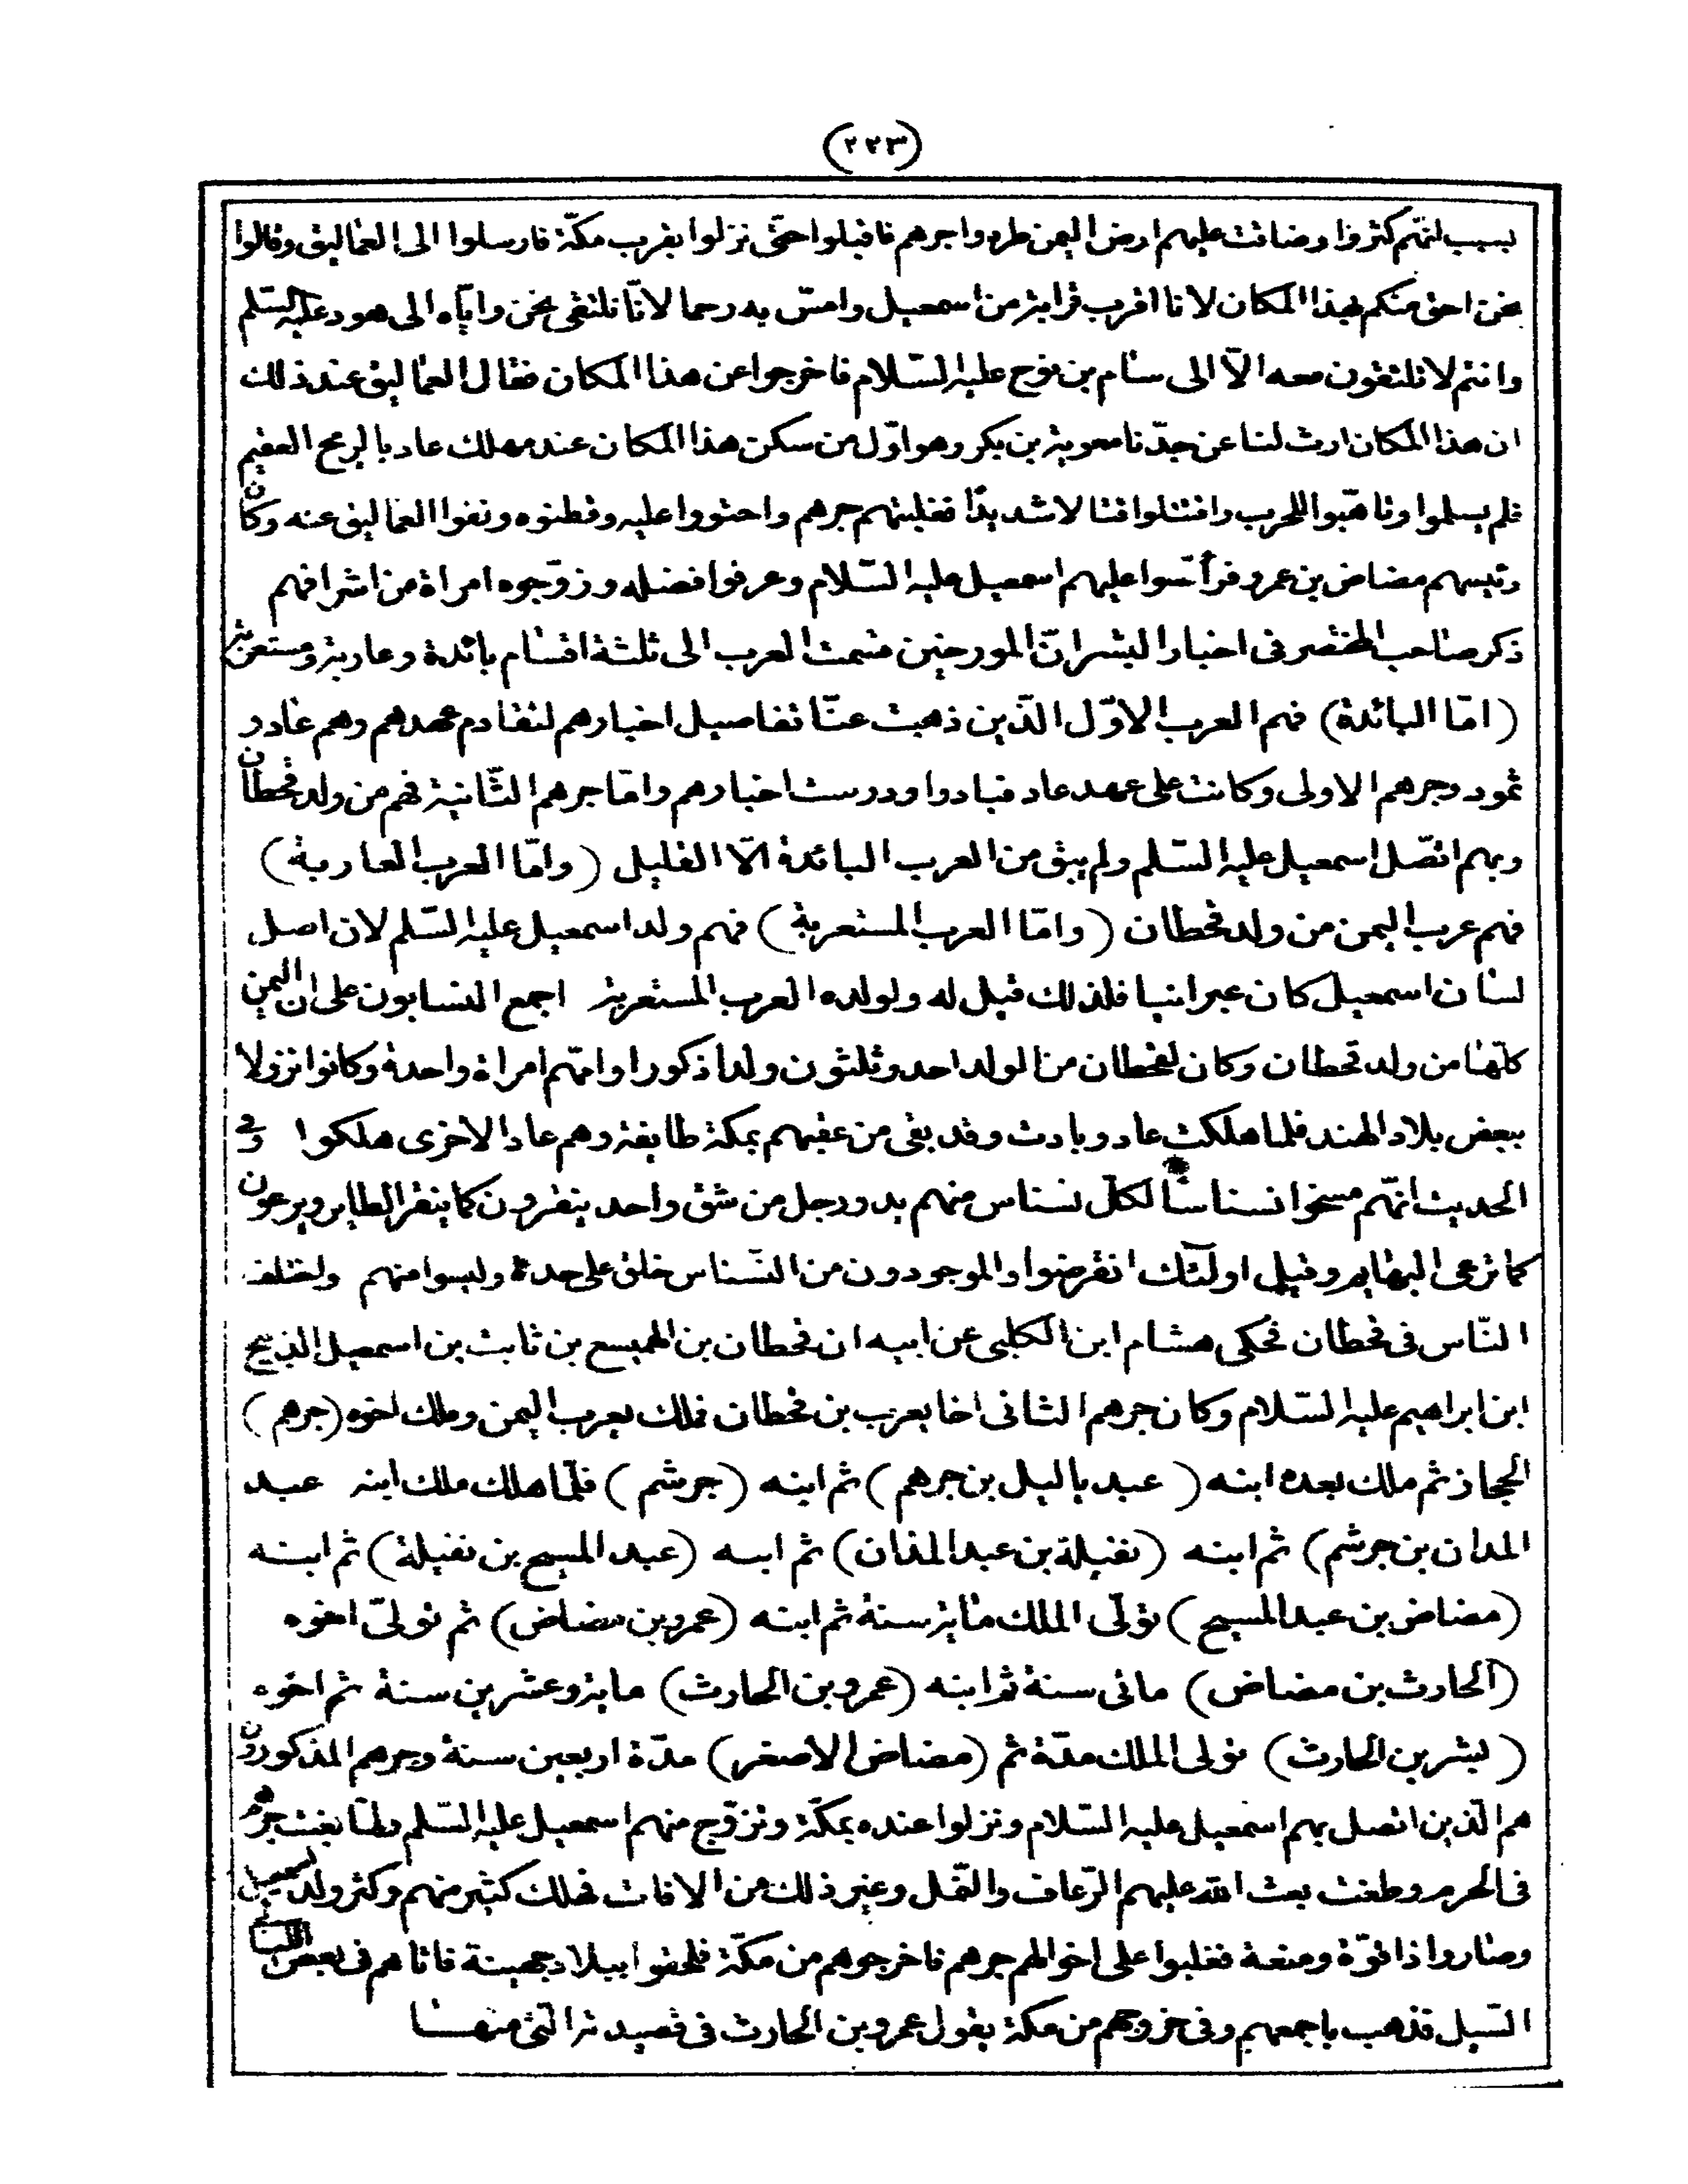 (٢٢٣)
بسبب انهم كثروا وضاقت عليهم ارض اليمن طردوا جرهم فاقبلوا حتى نزلوا بقرب مكّة فارسلوا الى العماليق وقالوا
نحن احق منكم بهذا المكان لانا اقرب قرابة من اسمعيل وامسّ به رحما لانّا نلتقى نحن وايّاه الى هود عليه السّلم
وانتم لا تلتقون معه الّا الى سام بن نوح عليه السّلام فاخرجوا عن هذا المكان فقال العماليق عند ذلك
ان هذا المكان ارث لنا عن جدّنا معوية بن بكر وهو اوّل من سكن هذا المكان عند مهلك عاد بالريح العقيم
فلم يسلموا وتاهّبوا للحرب واقتتلوا قتالا شديدًا فغلبتهم جرهم واحتووا عليه وقطنوه ونفوا العماليق عنه وكان
رئيسهم مضاض بن عمرو فرأسوا عليهم اسمعيل عليه السّلام وعرفوا فضله وزوّجوه امراة من اشرافهم
ذكر صاحب المختصر فى اخبار البشر انّ المورخين قسمت العرب الى ثلثة اقسام بائدة وعاربة ومستعربة
(امّا البائدة) فهم العرب الاوّل الّذين ذهبت عنّا تفاصيل اخبارهم لتقادم عهدهم وهم عاد و
ثمود وجرهم الاولى وكانت على عهد عاد فبادوا ودرست اخبارهم وامّا جرهم الثّانية فهم من ولد قحطان
وبهم اتّصل اسمعيل عليه السّلم ولم يبق من العرب البائدة الّا القليل (وامّا العرب العاربة)
فهم عرب اليمن من ولد قحطان (وامّا العرب المستعربة) فهم ولد اسمعيل عليه السّلم لان اصل
لسان اسمعيل كان عبرانيا فلذلك قيل له ولولده العرب المستعربة اجمع النسابون على ان اليمن
كلّها من ولد قحطان وكان لقحطان من الولد احد وثلثون ولدا ذكورا وامّهم امراة واحدة وكانوا نزولا
ببعض بلاد الهند فلما هلكت عاد وبادت وقد بقى من عقبهم بمكة طايفة وهم عاد الاخرى هلكوا وفي
الحديث انّهم مسخوا نسناسًا لكلّ نسناس منهم يد ورجل من شق واحد ينقرون كما ينقر الطاير ويرعون
كما ترعى البهايم وقيل اولئك انقرضوا والموجودون من النّسناس خلق على حدة وليسوا منهم واختلف
النّاس فى قحطان فحكى هشام ابن الكلبى عن ابيه ان قحطان بن الهميسع بن ثابت بن اسمعيل الذبيح
ابن ابراهيم عليه السّلام وكان جرهم الثانى اخا يعرب بن قحطان فملك يعرب اليمن وملك اخوه (جرهم)
الحجاز ثم ملك بعده ابنه (عبد ياليل بن جرهم) ثم ابنه (جرشم) فلمّا هلك ملك ابنه عبد
المدان بن جرشم) ثم ابنه (نفيلة بن عبد المدان) ثم ابنه (عبد المسيح بن نفيلة) ثم ابنه
(مضاض بن عبد المسيح) تولّى الملك ماية سنة ثم ابنه (عمرو بن مضاض) ثم تولىّ اخوه
(الحارث بن مضاض) مائى سنة ثم ابنه (عمرو بن الحارث) ماية وعشرين سنة ثم اخوه
(بشر بن الحارث) تولى الملك مدّة ثم (مضاض الاصغر) مدّة اربعين سنة وجرهم المذكورون
هم الّذين اتصل بهم اسمعيل عليه السّلام ونزلوا عنده بمكّة وتزوّج منهم اسمعيل عليه السّلم ولمّا بغت جرهم
فى الحرم وطغت بعث الله عليهم الرّعاف والنّمل وغير ذلك من الافات فهلك كثير منهم وكثر ولد اسمعيل
وصاروا ذا قوّة ومنعة فغلبوا على اخوالهم جرهم فاخرجوهم من مكّة فلحقوا ببلاد جهينة فاتاهم فى بعض الليالى
السّيل فذهب باجمعهم وفى خروجهم من مكة يقول عمرو بن الحارث فى قصيدته الّتى منهــا